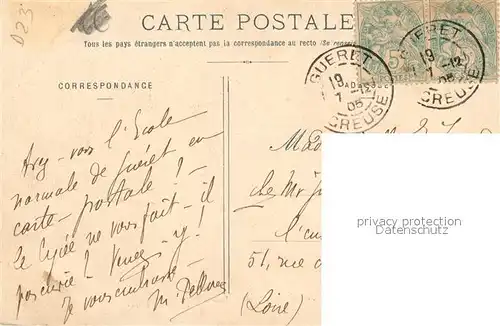 D23
CARTE POSTALE
Tous les pays étrangers n'acceptent pas la correspondance au recto (Se
CORRESPONDANCE
GUERET
19
7 -12
05
CREUSE
GUERET
19
7 -12
05
CREUSE
5
ADRESSE
vous l'Ecole
normale de Guéret en
carte-postale ! -
Le Lycée ne vous fait-il
! Venez-y !
Je vous embrasse
M.
chez Mr
51, rue
(Loire)
privacy protection
Datenschutz